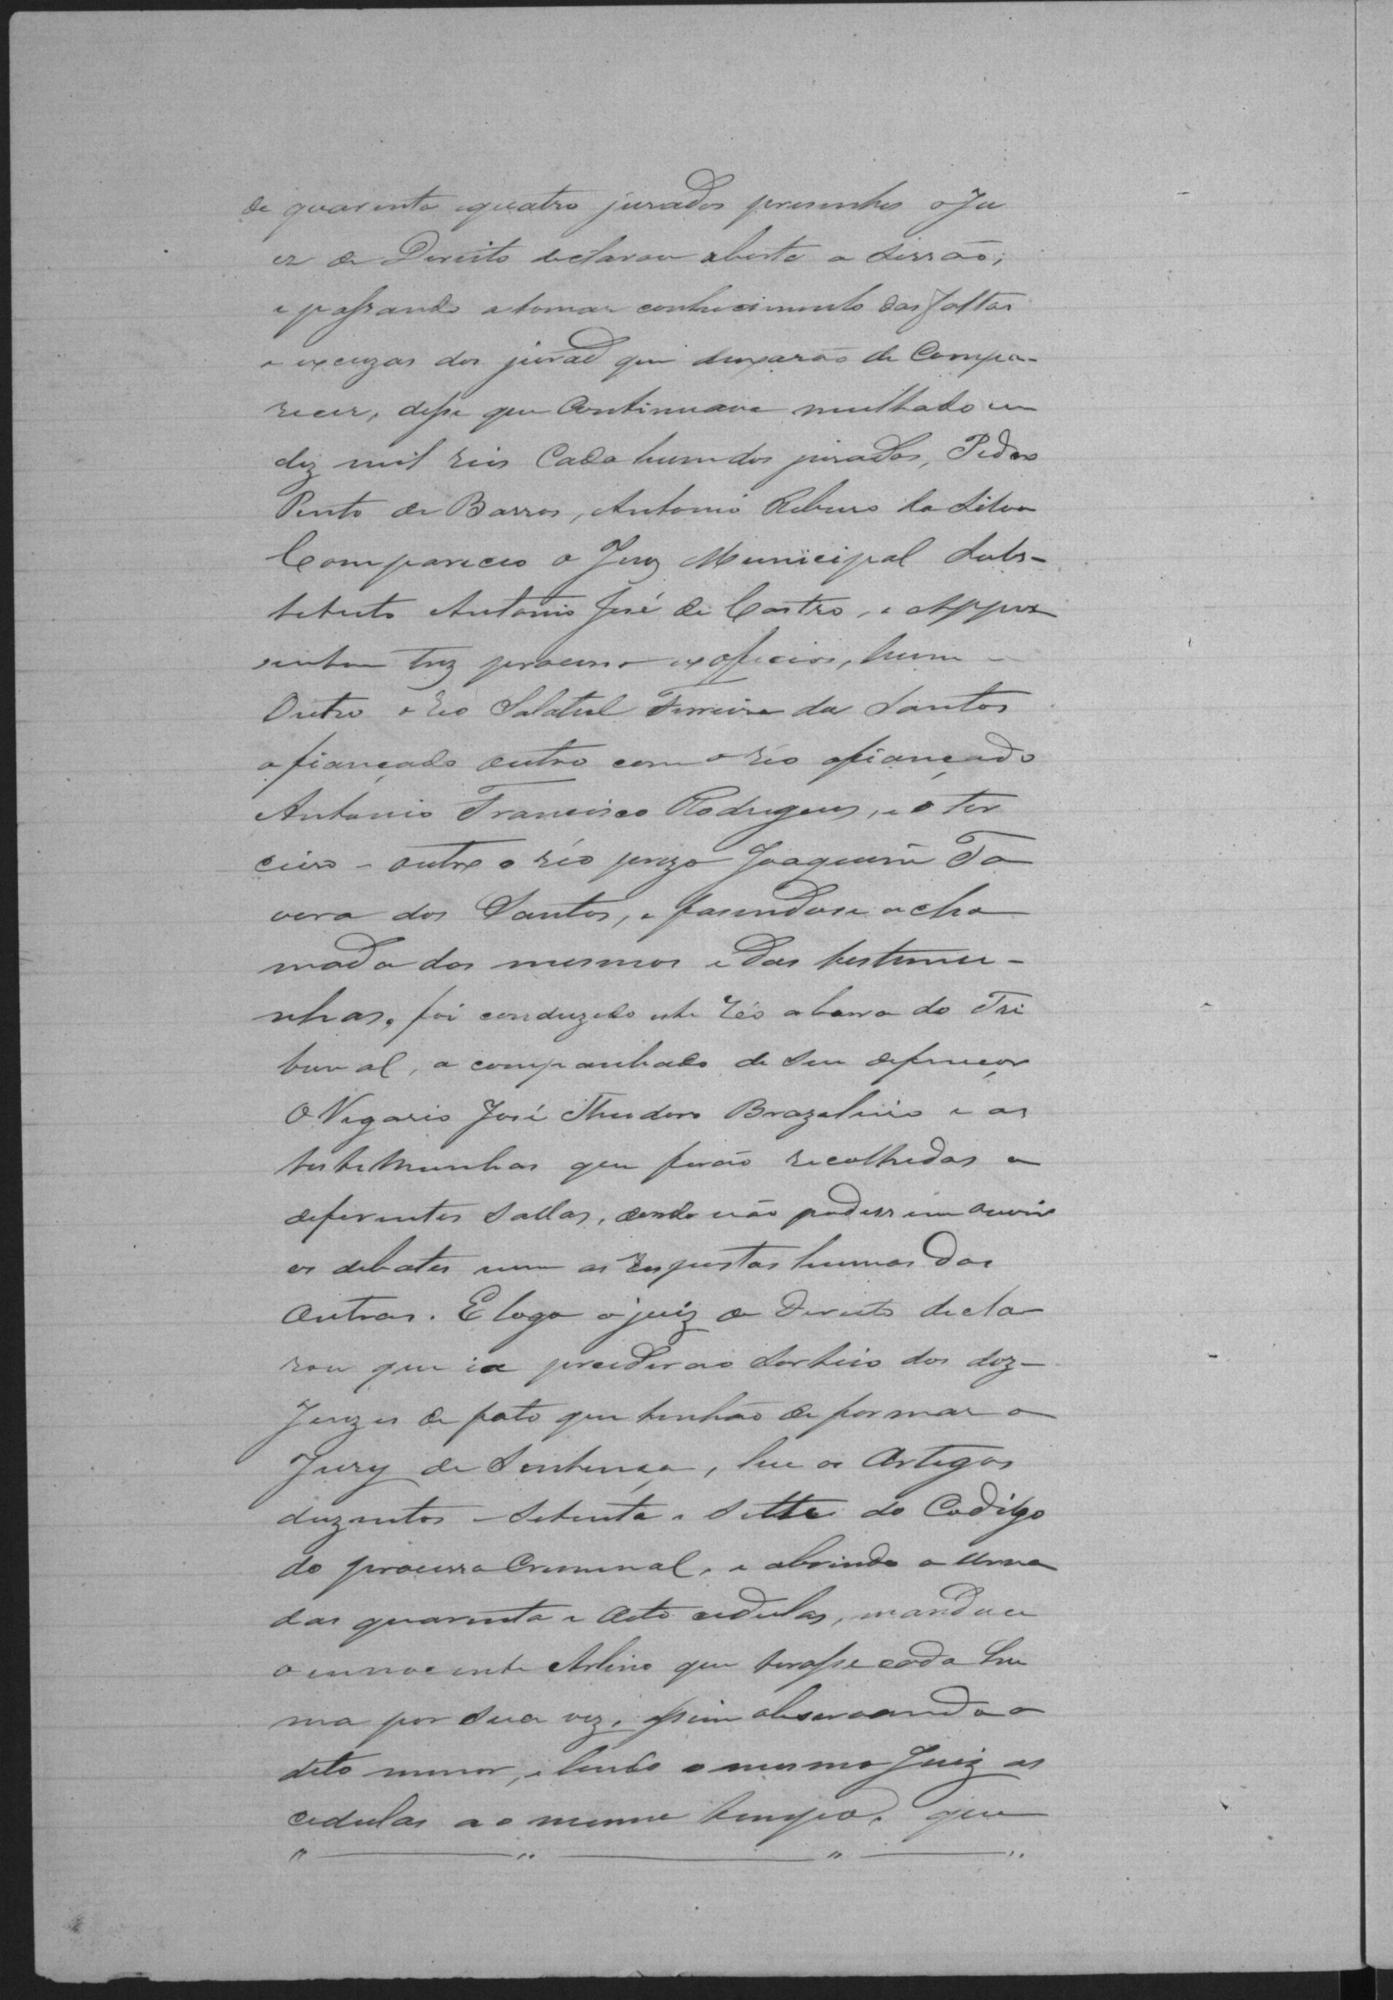 de quarenta equatro jurados presentes o Ju
iz de Direito declarou aberta a Sessão;
e passando atomar conhecimento das faltas
e excuzas dos jurad que deixarão de Compa-
recer, disse que Continuava multado em
diz mil reis Cada hum dos jurados, Pedro
Pinto de Barros, Antonio Ribeiro da Silva
Compareceo o Juiz Municipal Subs-
tetuto Antonio José de Castro, e Appre
sentou trez processos exofficios, hum
Outro o réo Salatiel Ferreira da Santos
afiançado outro com o réo afiançado
Antonio Francisco Rodrigues, e o ter
ceiro - outro o réo prezo Joaquim Ta
vera dos Santos, e fasendose acha
mada dos mesmos e das testemu-
nhas, foi conduzido este réo abarra do Tri
bunal, a companhado de seu defençor
O Vigario José Theodoro Brazeleiro e as
testemunhas que forão recolhedas a
deferentes Sallas, donde não podessem ouvir
os debates nem as respostas humas das
Outras. E logo o juiz de Direito decla
rou que ia proceder ao Sorteio dos doz-
Juizes de fato que tinhão de formar o
Jury de Sentença, leu os Artegos
duzentos - Setenta e Sette do Codigo
do processo Criminal, e abrindo a Urna
das quarenta e Oito cedulas, mandou
o innocente Arlino que tirasse cada hu
ma por sua vez, assim observando o
dito menor, e lendo o mesmo Juiz as
cedulas ao mesmo tempo, que